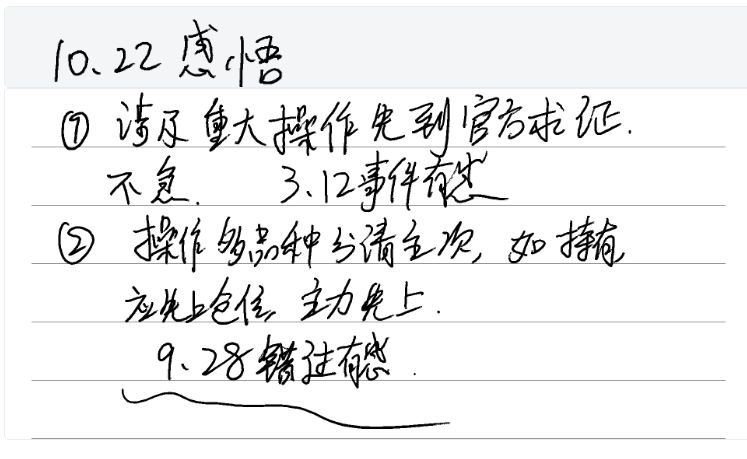 10.22感悟
① 涉及重大操作先到官方求证.
不急. 3.12事件有感
② 操作多品种分清主次, 如持有,
应先上仓位, 主力先上.
9.28错过有感.